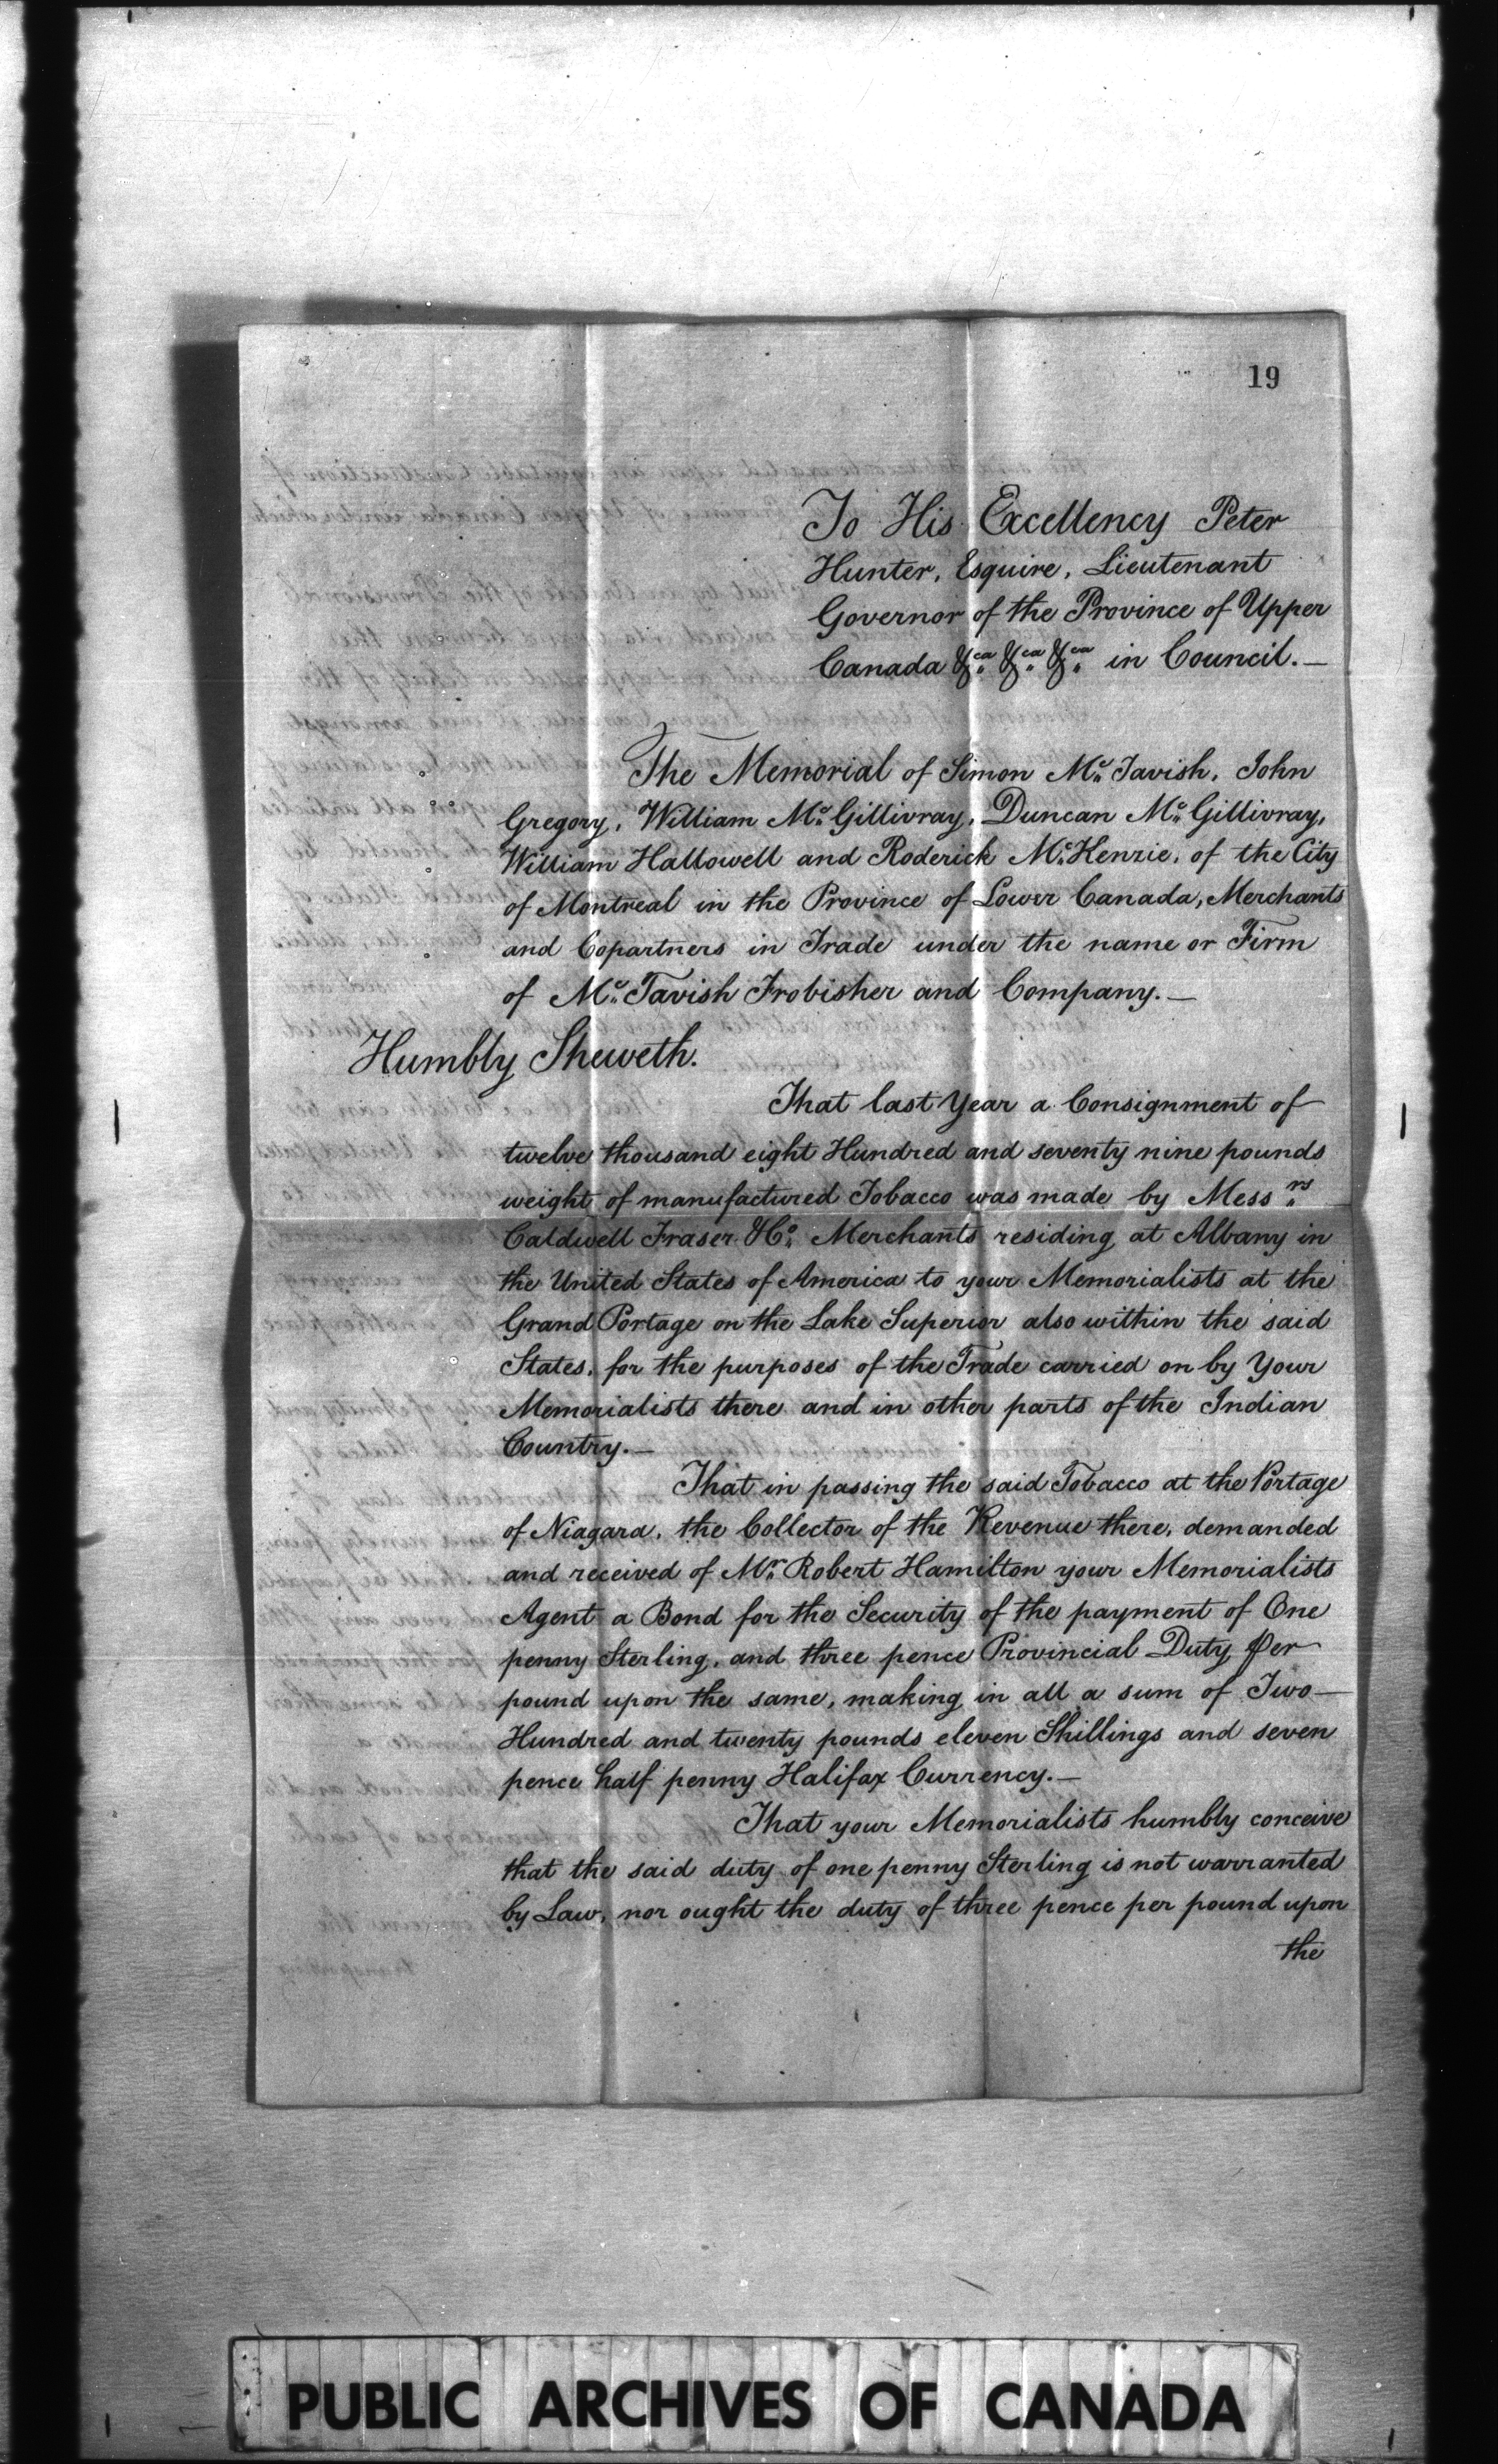 19
To His Excellency Peter
Hunter, Esquire, Lieutenant
Governor of the Province of Upper
Canada &ca &ca &ca in Council.—
The Memorial of Simon Mc Tavish, John
Gregory, William Mc Gillivray, Duncan Mc Gillivray,
William Hallowell and Roderick Mc Kenzie, of the City
of Montreal in the Province of Lower Canada, Merchants
and Copartners in Trade under the name or Firm
of Mc Tavish Frobisher and Company.—
Humbly Sheweth.
That last Year a Consignment of
twelve thousand eight Hundred and seventy nine pounds
weight of manufactured Tobacco was made by Messrs
Caldwell Fraser & Co Merchants residing at Albany in
the United States of America to your Memorialists at the
Grand Portage on the Lake Superior also within the said
States, for the purposes of the Trade carried on by Your
Memorialists there and in other parts of the Indian
Country.—
That in passing the said Tobacco at the Portage
of Niagara, the Collector of the Revenue there, demanded
and received of Mr Robert Hamilton your Memorialists
Agent a Bond for the Security of the payment of One
penny Sterling, and three pence Provincial Duty per
pound upon the same, making in all a sum of Two
Hundred and twenty pounds eleven Shillings and seven
pence half penny Halifax Currency.—
That your Memorialists humbly conceive
that the said duty of one penny Sterling is not warranted
by Law, nor ought the duty of three pence per pound upon
the
PUBLIC ARCHIVES OF CANADA